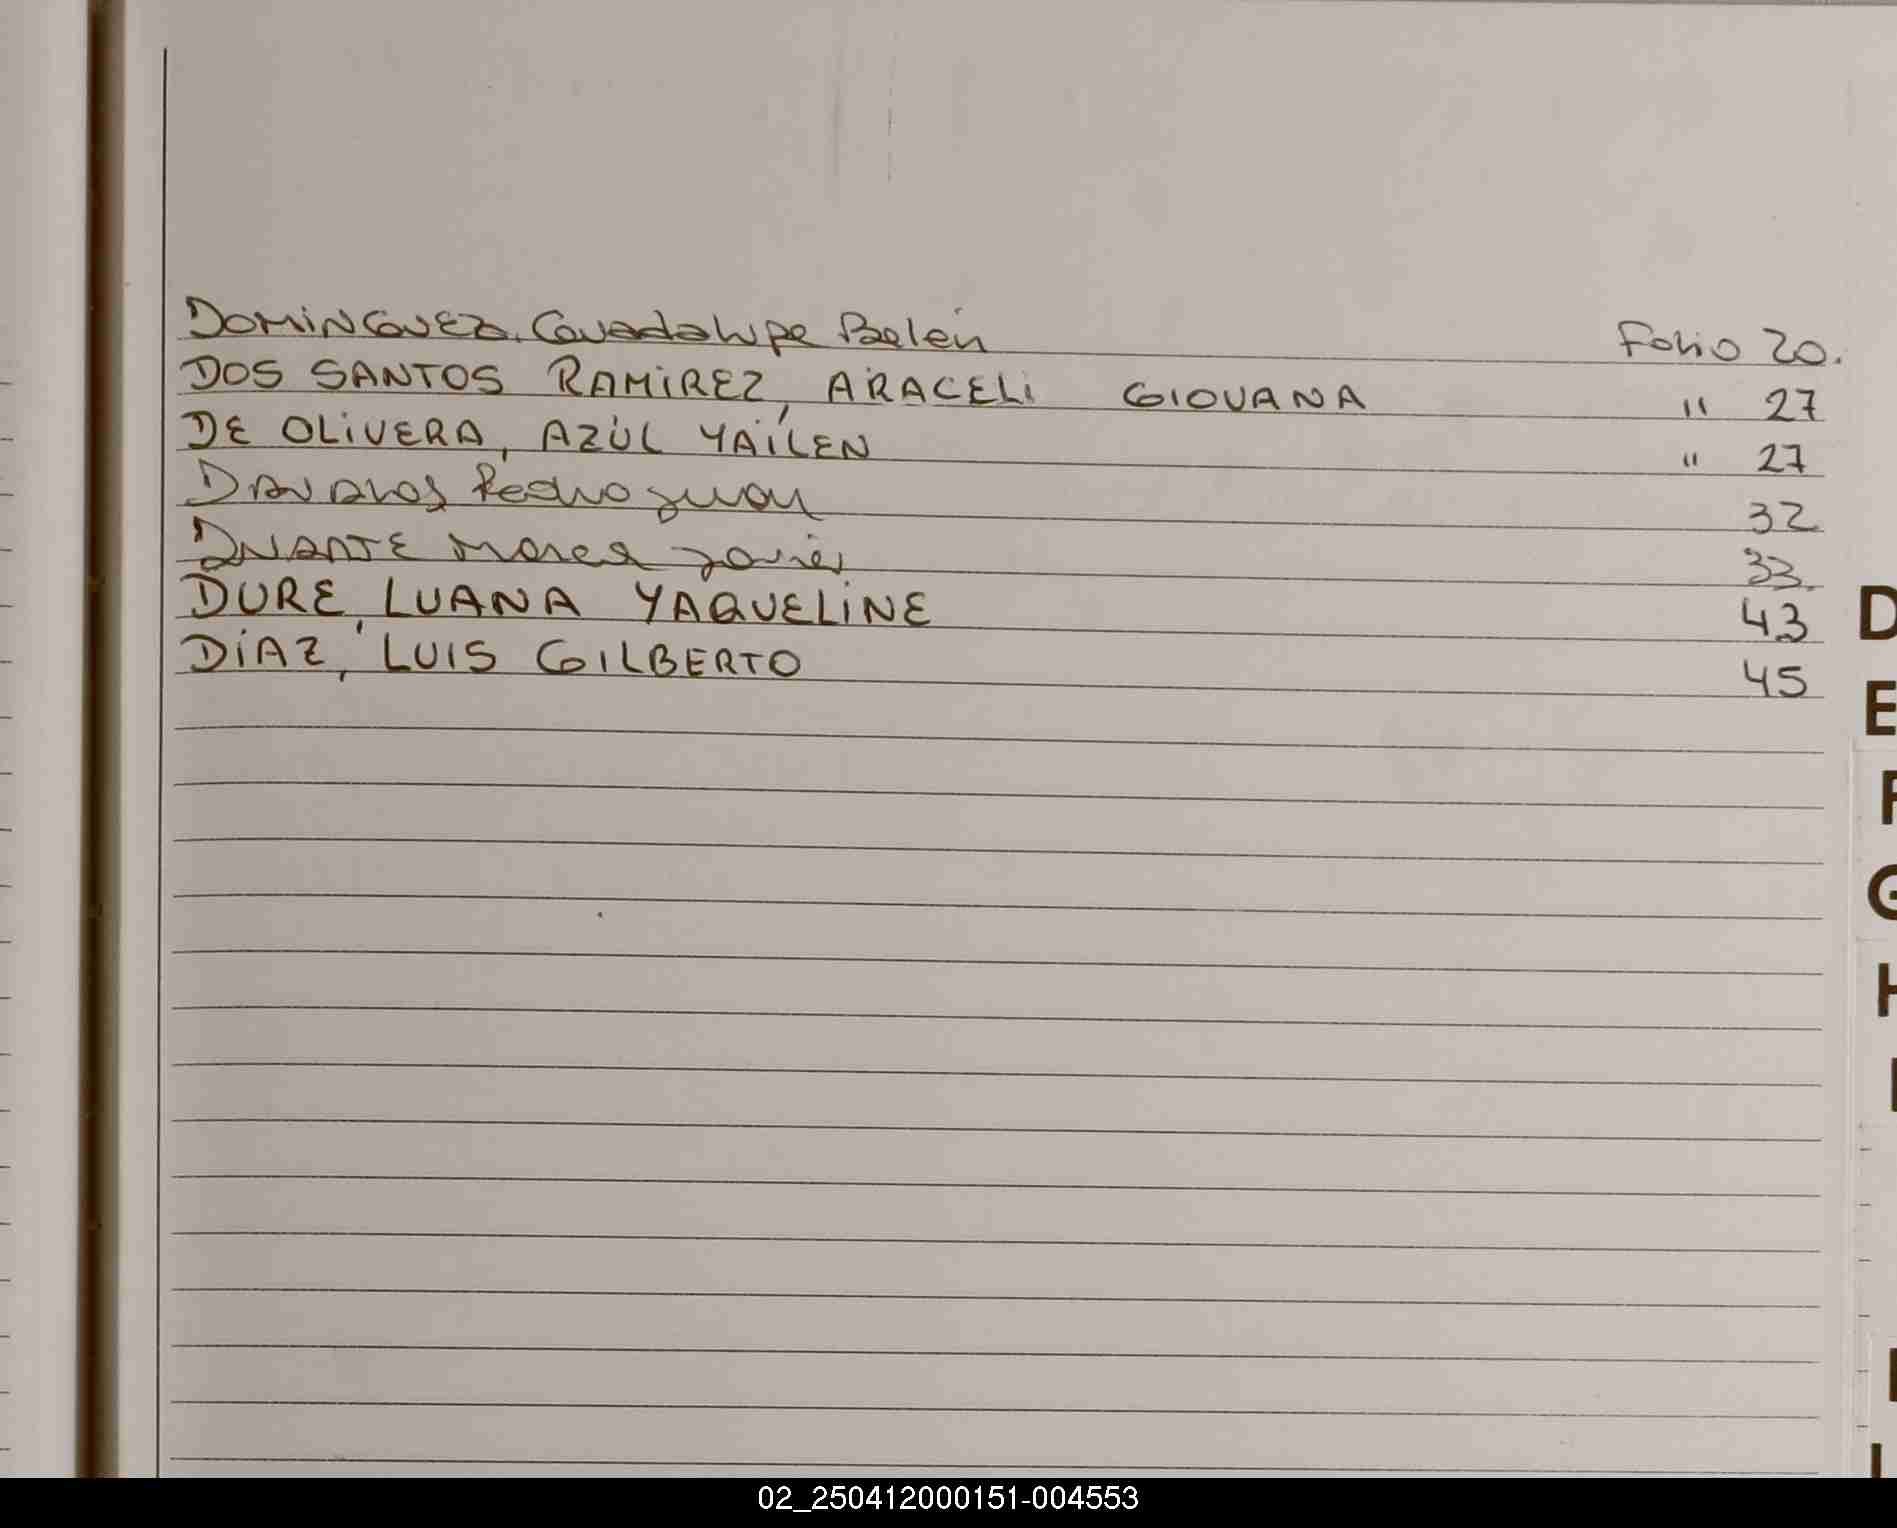 DOMINGUEZ. Guadalupe Belén Folio 20.
DOS SANTOS RAMIREZ, ARACELI GIOVANA " 27
DE OLIVERA, AZUL YAÍLEN " 27
DAVALOS Pedro Juan 32
DUARTE Marca Javier 33.
DURE, LUANA YAQUELINE 43
DIAZ, LUIS GILBERTO 45
D
E
F
G
H
02_250412000151-004553